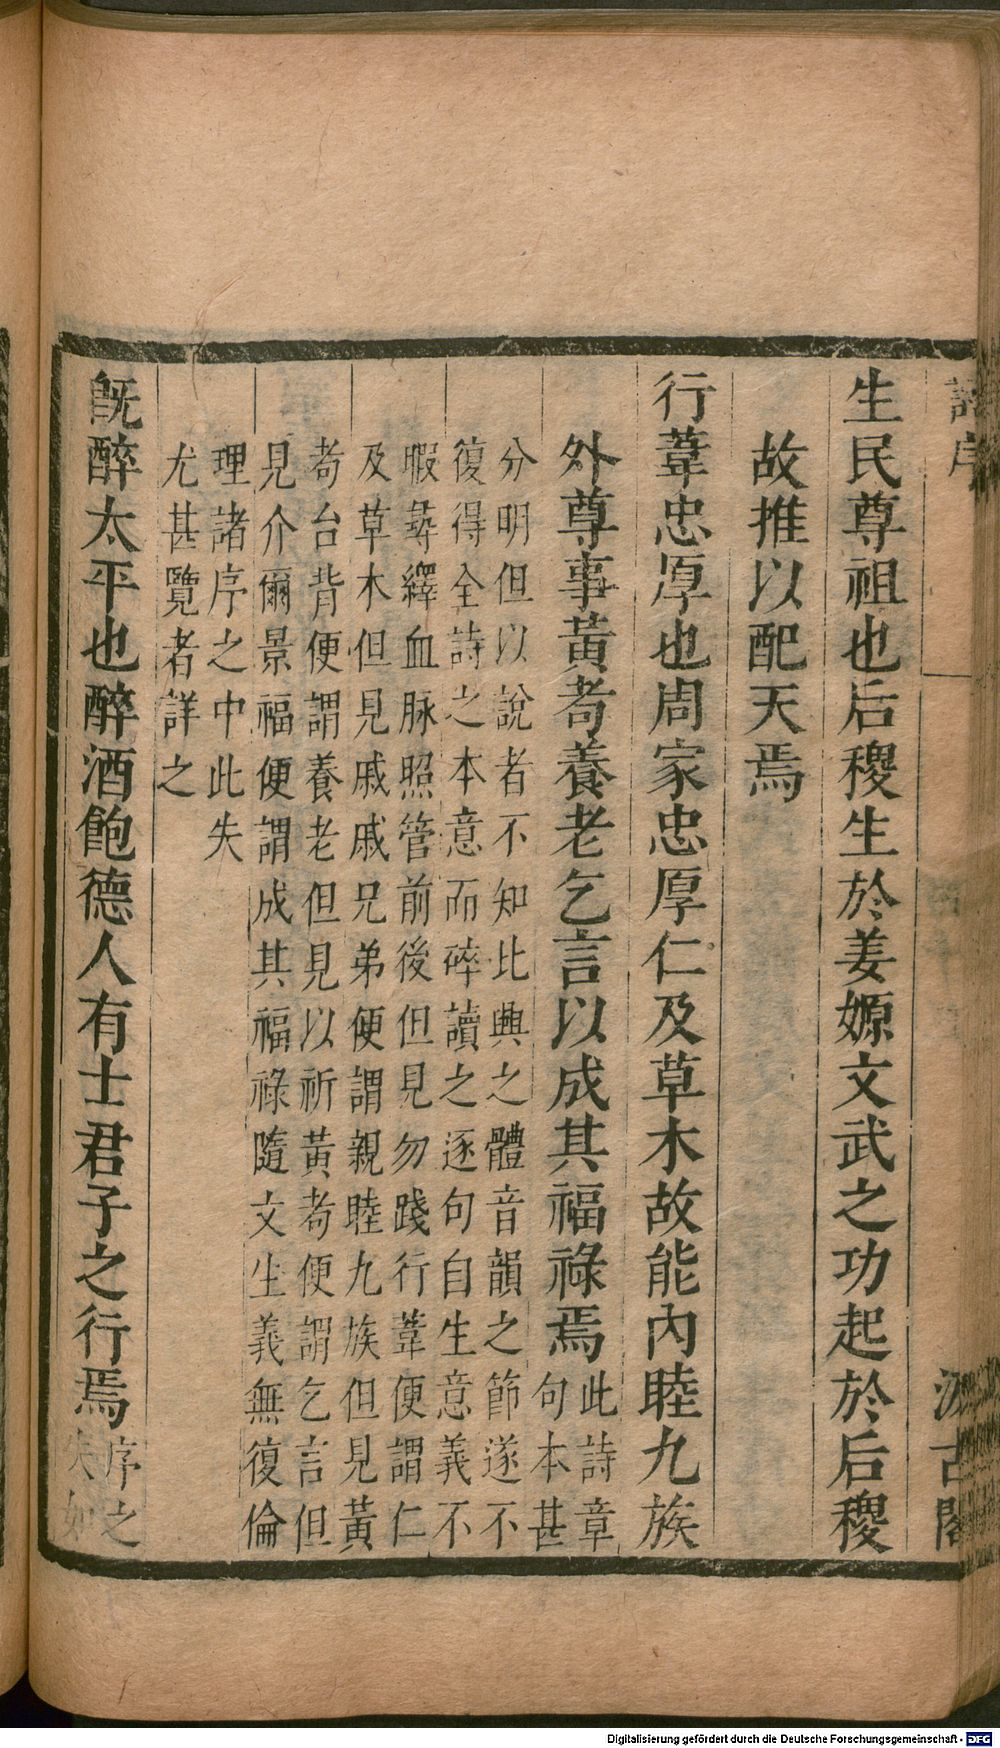 詩序
汲古閣
生民尊祖也后稷生於姜嫄文武之功起於后稷
故推以配天焉
行葦忠厚也周家忠厚仁及草木故能內睦九族
外尊事黃耇養老乞言以成其福祿焉此詩章
句本甚
分明但以說者不知比興之體音韻之節遂不
復得全詩之本意而碎讀之逐句自生意義不
暇尋繹血脉照管前後但見勿踐行葦便謂仁
及草木但見戚戚兄弟便謂親睦九族但見黃
耇台背便謂養老但見以祈黃耇便謂乞言但
見介爾景福便謂成其福祿隨文生義無復倫
理諸序之中此失
尤甚覽者詳之
旣醉太平也醉酒飽德人有士君子之行焉序之
失如
Digitalisierung gefördert durch die Deutsche Forschungsgemeinschaft - DFG